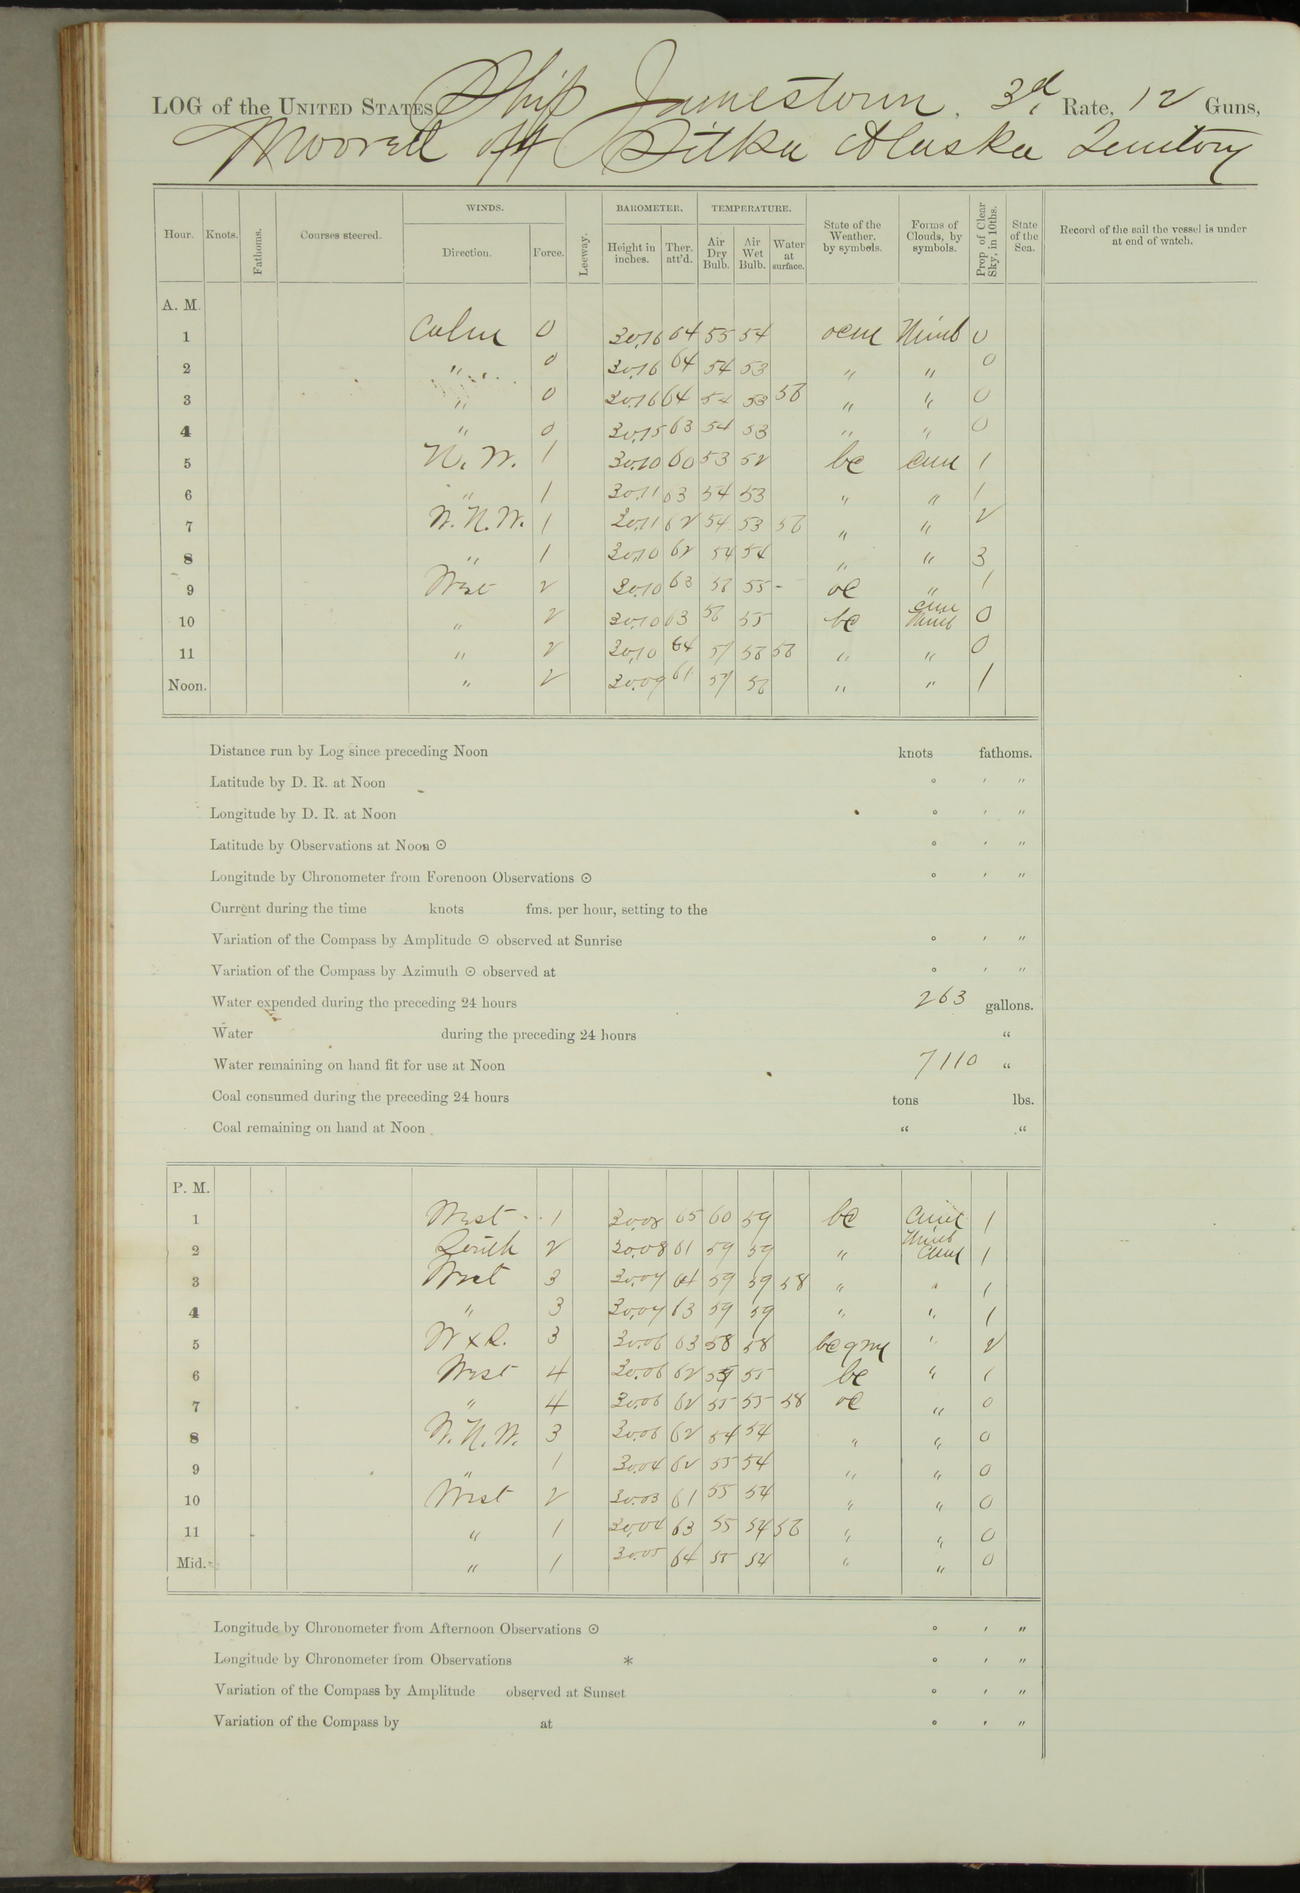 LOG of the UNITED STATES Ship Jamestown, 3d Rate, 12 Guns,
Moored off Sitka Alaska Territory
Hour. Knots. Fathoms. Courses steered. WINDS. Direction. Force. Leeway. BAROMETER. Height in inches. Ther. att'd. TEMPERATURE. Air Dry Bulb. Air Wet Bulb. Water at surface. State of the Weather, by symbols. Forms of Clouds, by symbols. Prop. of Clear Sky, in 10ths. State of the Sea. Record of the sail the vessel is under at end of watch.
A. M.
1 Calm 0 30.16 64 55 54 ocm Nimb 0
2 " 0 30.16 64 54 53 " " 0
3 " 0 30.16 64 54 53 56 " " 0
4 " 0 30.15 63 54 53 " " 0
5 N. W. 1 30.10 60 53 52 bc Cum 1
6 " 1 30.11 63 54 53 " " 1
7 W. N. W. 1 30.11 62 54 53 56 " " 2
8 " 1 30.10 62 54 54 " " 3
9 West 2 30.10 63 56 55 - oc " 1
10 " 2 30.10 63 56 55 bc Cum Nimb 0
11 " 2 30.10 64 57 56 56 " " 0
Noon. " 2 30.09 61 57 56 " " 1
Distance run by Log since preceding Noon knots fathoms.
Latitude by D. R. at Noon ° ' "
Longitude by D. R. at Noon ° ' "
Latitude by Observations at Noon ⊙ ° ' "
Longitude by Chronometer from Forenoon Observations ⊙ ° ' "
Current during the time knots fms. per hour, setting to the
Variation of the Compass by Amplitude ⊙ observed at Sunrise ° ' "
Variation of the Compass by Azimuth ⊙ observed at ° ' "
Water expended during the preceding 24 hours 263 gallons.
Water during the preceding 24 hours "
Water remaining on hand fit for use at Noon 7110 "
Coal consumed during the preceding 24 hours tons lbs.
Coal remaining on hand at Noon " "
P. M.
1 West 1 30.08 65 60 59 bc 1
2 South 2 30.08 61 59 59 " Nimb Cum 1
3 West 3 30.07 64 59 59 58 " " 1
4 " 3 30.07 63 59 59 " " 1
5 W x S. 3 30.06 63 58 58 bcqm " 2
6 West 4 30.06 62 55 bc " 1
7 " 4 30.06 62 55 55 58 oc " 0
8 W. N. W. 3 30.06 62 54 54 " " 0
9 " 1 30.04 62 55 54 " " 0
10 West 2 30.03 61 55 54 " " 0
11 " 1 30.04 63 55 54 56 " " 0
Mid. " 1 30.05 64 55 54 " " 0
Longitude by Chronometer from Afternoon Observations ⊙ ° ' "
Longitude by Chronometer from Observations * ° ' "
Variation of the Compass by Amplitude observed at Sunset ° ' "
Variation of the Compass by at ° ' "